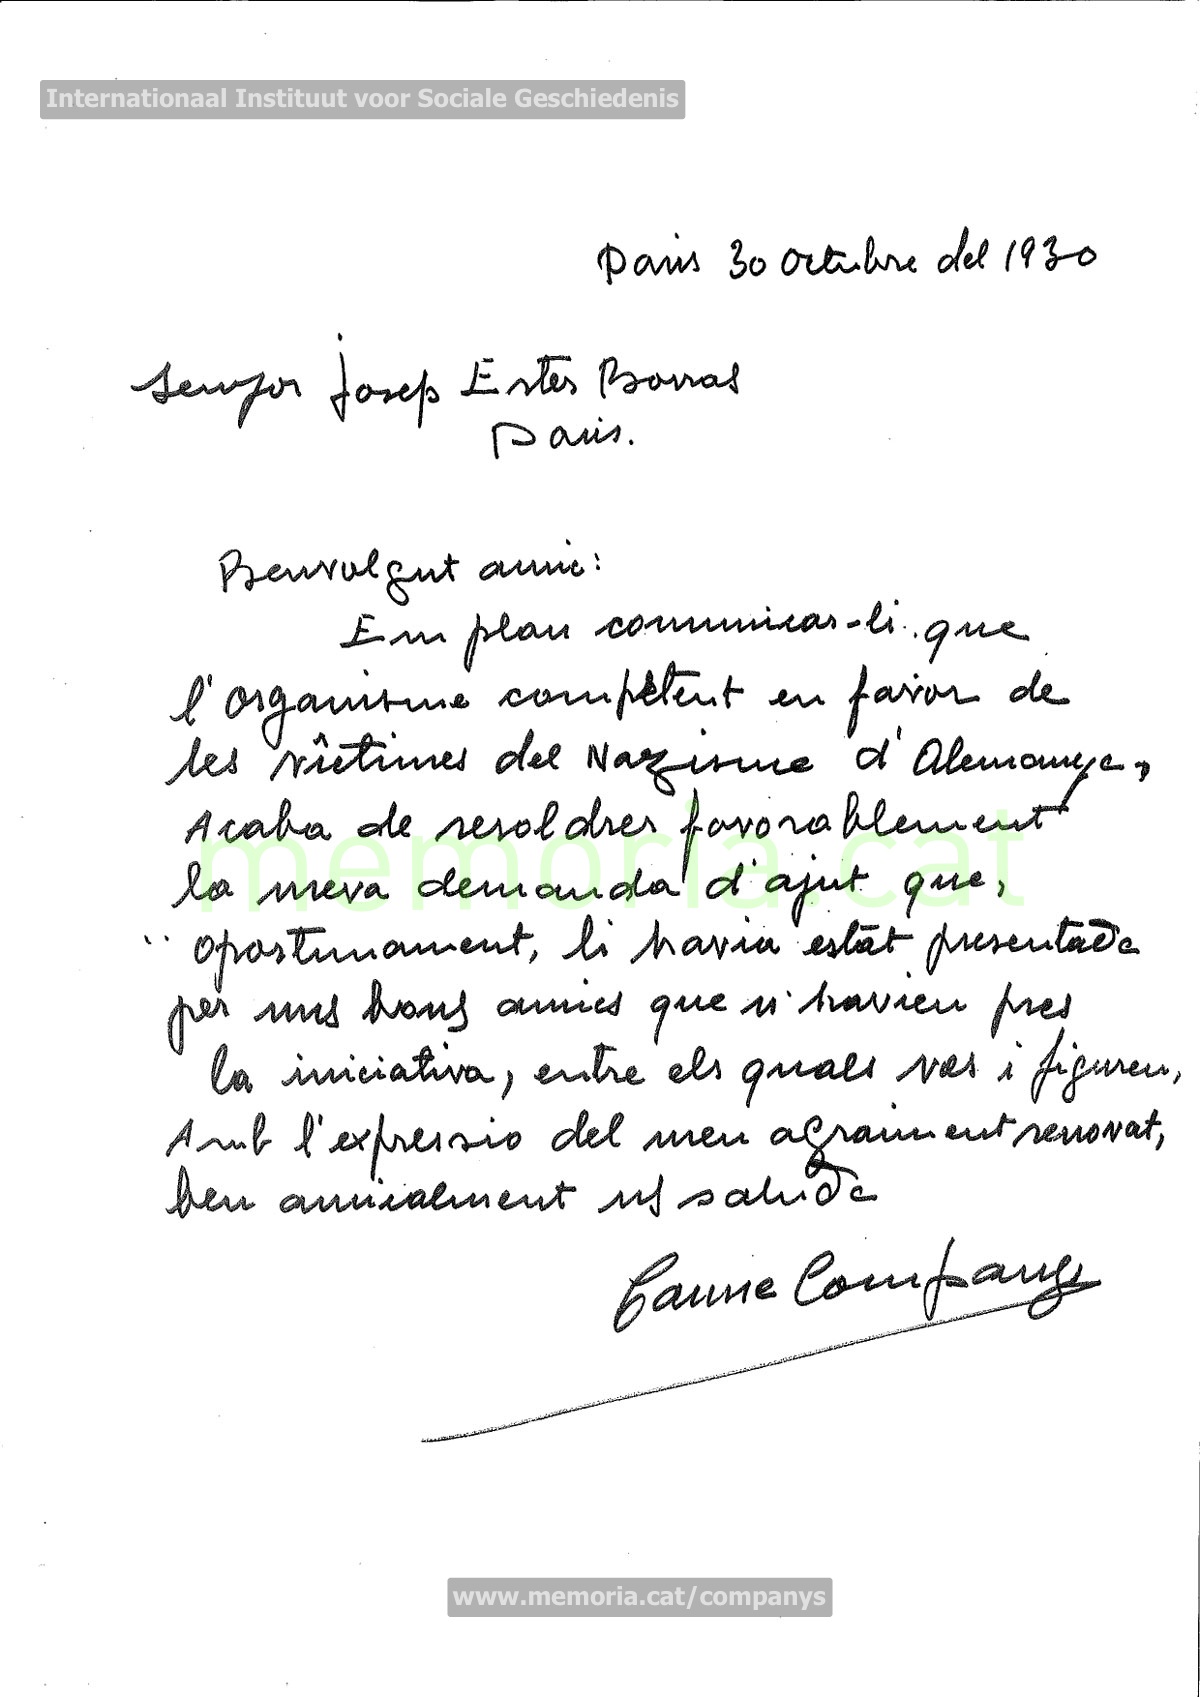 Internationaal Instituut voor Sociale Geschiedenis
Paris 30 octubre del 1930
Senyor Josep Ester Borras
Paris.
Benvolgut amic:
Em plau comunicar-li que
l'organisme compètent en favor de
les vîctimes del Nazisme d'Alemanya,
Acaba de resoldrer favorablement
la meva demanda d'ajut que,
oportunament, li havia estat presentada
per uns bons amics que n'havien pres
la iniciativa, entre els quals vos i figureu,
Amb l'expressio del meu agraiment renovat,
ben amicalment us saluda
Carme Companys
memoria.cat
www.memoria.cat/companys